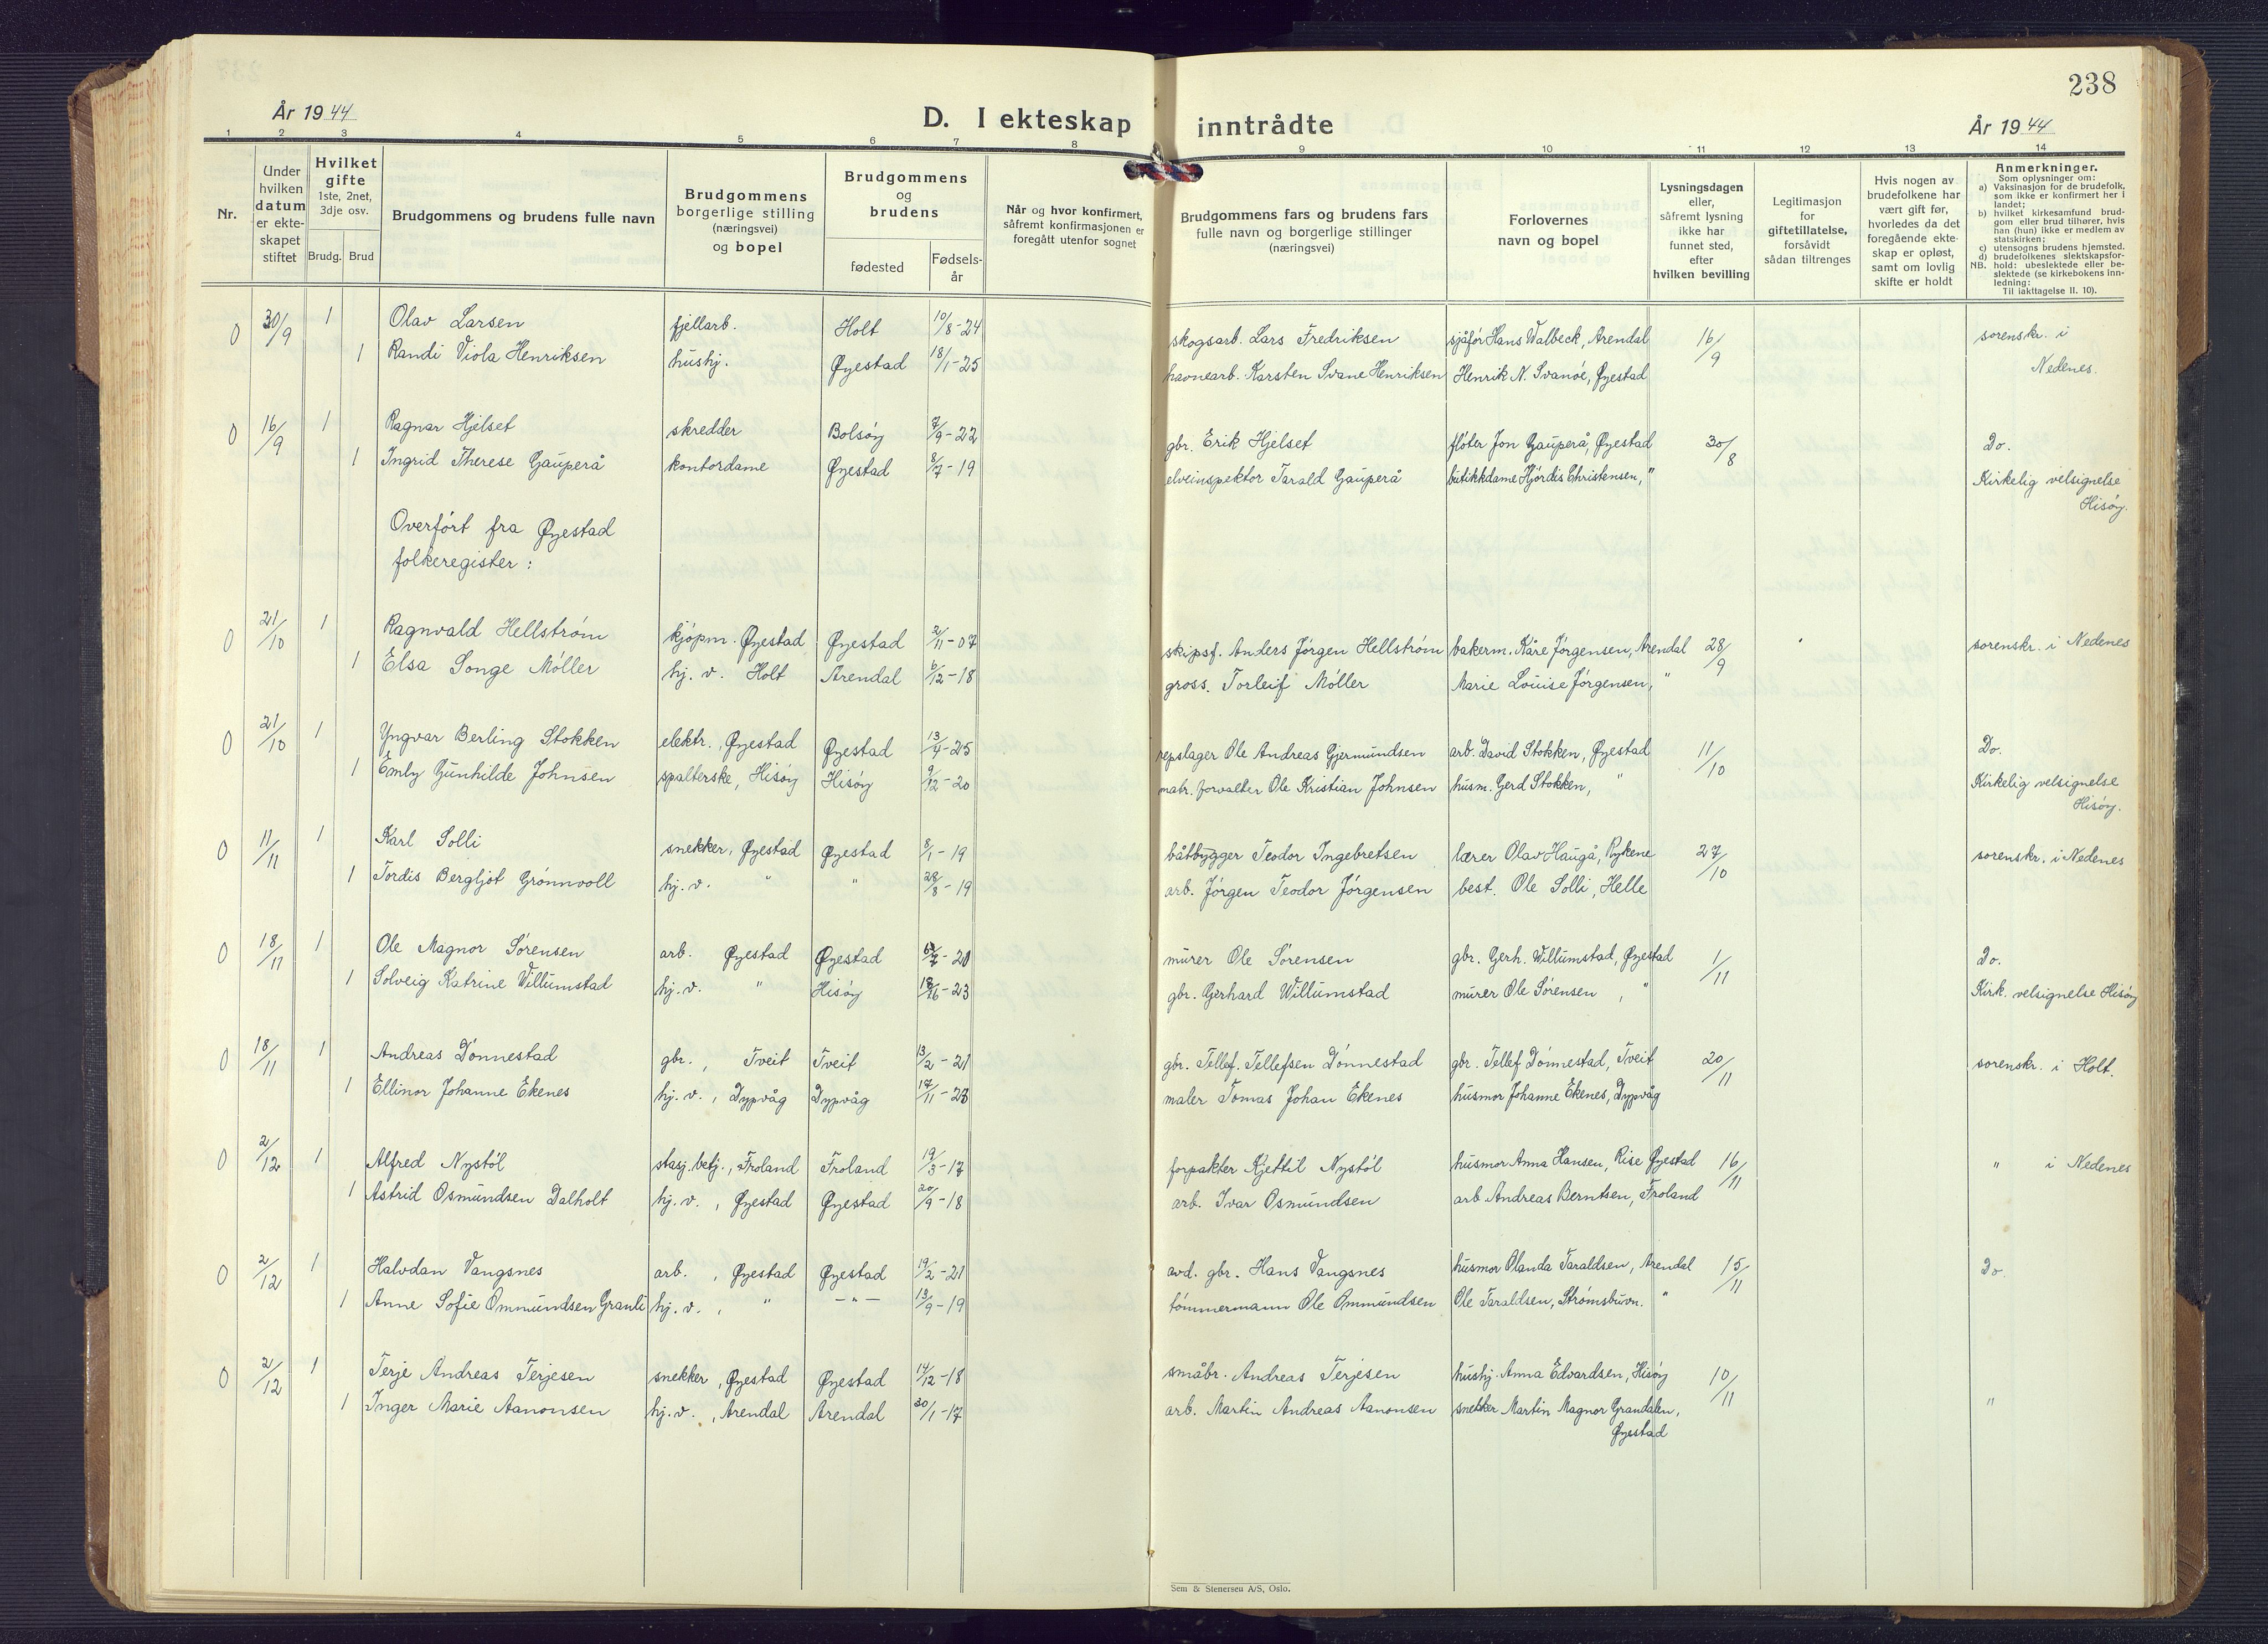 238
År 1944
D. I ekteskap inntrådte
År 1944
1 2 3 4 5 6 7 8 9 10 11 12 13 14
Nr.
Under hvilken datum er ekteskapet stiftet
Hvilket gifte 1ste, 2net, 3dje osv.
Brudg. Brud
Brudgommens og brudens fulle navn
Brudgommens borgerlige stilling (næringsvei) og bopel
Brudgommens og brudens
fødested
Fødselsår
Når og hvor konfirmert, såfremt konfirmasjonen er foregått utenfor sognet
Brudgommens fars og brudens fars fulle navn og borgerlige stillinger (næringsvei)
Forlovernes navn og bopel
Lysningsdagen eller, såfremt lysning ikke har funnet sted, efter hvilken bevilling
Legitimasjon for giftetillatelse, forsåvidt sådan tiltrenges
Hvis nogen av brudefolkene har vært gift før, hvorledes da det foregående ekteskap er opløst, samt om lovlig skifte er holdt
Anmerkninger.
Som oplysninger om:
a) Vaksinasjon for de brudefolk, som ikke er konfirmert her i landet;
b) hvilket kirkesamfund brudgom eller brud tilhører, hvis han (hun) ikke er medlem av statskirken;
c) utensogns brudens hjemsted.
d) brudefolkenes slektskapsforhold: ubeslektede eller beslektede (se kirkebokens innledning:
NB. Til iakttagelse II. 10).
0 30/9 1 Olav Larsen fjellarb. Holt 10/8-24 skogsarb. Lars Fredriksen sjåfør Hans Walbeck, Arendal 16/9 sorenskr. i
1 Randi Viola Henriksen hushj. Øyestad 18/1-25 havnearb. Karsten Svane Henriksen Henrik N. Svanóe, Øyestad Nedenes.
0 16/9 1 Ragnar Hjelset skredder Bolsøy 7/9-22 gbr. Erik Hjelset fløter Jon Gauperå, Øyestad 30/8 Do.
1 Ingrid Therese Gauperå kontordame Øyestad 8/7-19 elveinspektor Tarald Gauperå butikkdame Hjørdis Christensen, " Kirkelig velsignelse
Hisøy.
Overført fra Øyestad
folkeregister :
0 21/10 1 Ragnvald Hellstrøm kjøpm. Øyestad Øyestad 2/11-07 skipsf. Anders Jørgen Hellstrøm bakerm. Kåre Jørgensen, Arendal 28/9 sorenskr. i Nedenes
1 Elsa Songe Møller hj. v. Holt Arendal 6/12-18 gross. Torleif Møller Marie Louise Jørgensen, "
0 21/10 1 Yngvar Berling Stokken elektr., Øyestad Øyestad 13/4-25 repslager Ole Andreas Gjermundsen arb. David Stokken, Øyestad 11/10 Do.
1 Emly Gunhilde Johnsen spalterske, Hisøy Hisøy 9/12-20 matr. forvalter Ole Kristian Johnsen husm. Gerd Stokken, " Kirkelig velsignelse
Hisøy.
0 11/11 1 Karl Solli snekker, Øyestad Øyestad 8/1-19 båtbygger Teodor Ingebretsen lærer Olav Haugå, Rykene 27/10 sorenskr. i Nedenes
1 Tordis Bergljot Grønnvoll hj. v. " " 28/8-19 arb. Jørgen Teodor Jørgensen best. Ole Solli, Helle
0 18/11 1 Ole Magnor Sørensen arb. Øyestad Øyestad -20 murer Ole Sørensen gbr. Gerh. Willumstad, Øyestad 1/11 Do.
1 Solveig Katrine Willumstad hj. v. " Hisøy -23 gbr. Gerhard Willumstad murer Ole Sørensen, " Kirk. velsignelse Hisøy
0 18/11 1 Andreas Dønnestad gbr., Tveit Tveit 13/2-21 gbr. Tellef. Tellefsen Dønnestad gbr. Tellef Dønnestad, Tveit 20/11 sorenskr. i Holt.
1 Ellinor Johanne Ekenes hj. v., Dypvåg Dypvåg 17/11-23 maler Tomas Johan Ekenes husmor Johanne Ekenes, Dypvåg
0 2/12 1 Alfred Nystøl stasj. betj., Froland Froland 19/3-17 forpakter Kjettil Nystøl husmor Anna Hansen, Rise Øyestad 16/11 " i Nedenes
1 Astrid Osmundsen Dalholt hj. v., Øyestad Øyestad 20/9-18 arb. Ivar Osmundsen arb Andreas Berntsen, Froland
0 2/12 1 Halvdan Vangsnes arb., Øyestad Øyestad 19/2-21 avd. gbr. Hans Vangsnes husmor Olanda Taraldsen, Arendal 15/11 Do.
1 Anne Sofie Ommundsen Granli hj. v., " —"— 13/9-19 tømmermann Ole Ommundsen Ole Taraldsen, Strømsbuvn. "
0 2/12 1 Terje Andreas Terjesen snekker, Øyestad Øyestad 14/12-18 småbr. Andreas Terjesen hushj. Anna Edvardsen, Hisøy 10/11
1 Inger Marie Aanonsen hj. v., Arendal Arendal 30/1-17 arb. Martin Andreas Aanonsen snekker Martin Magnor Grandalen, "
Øyestad
Sem & Stenersen A/S, Oslo.